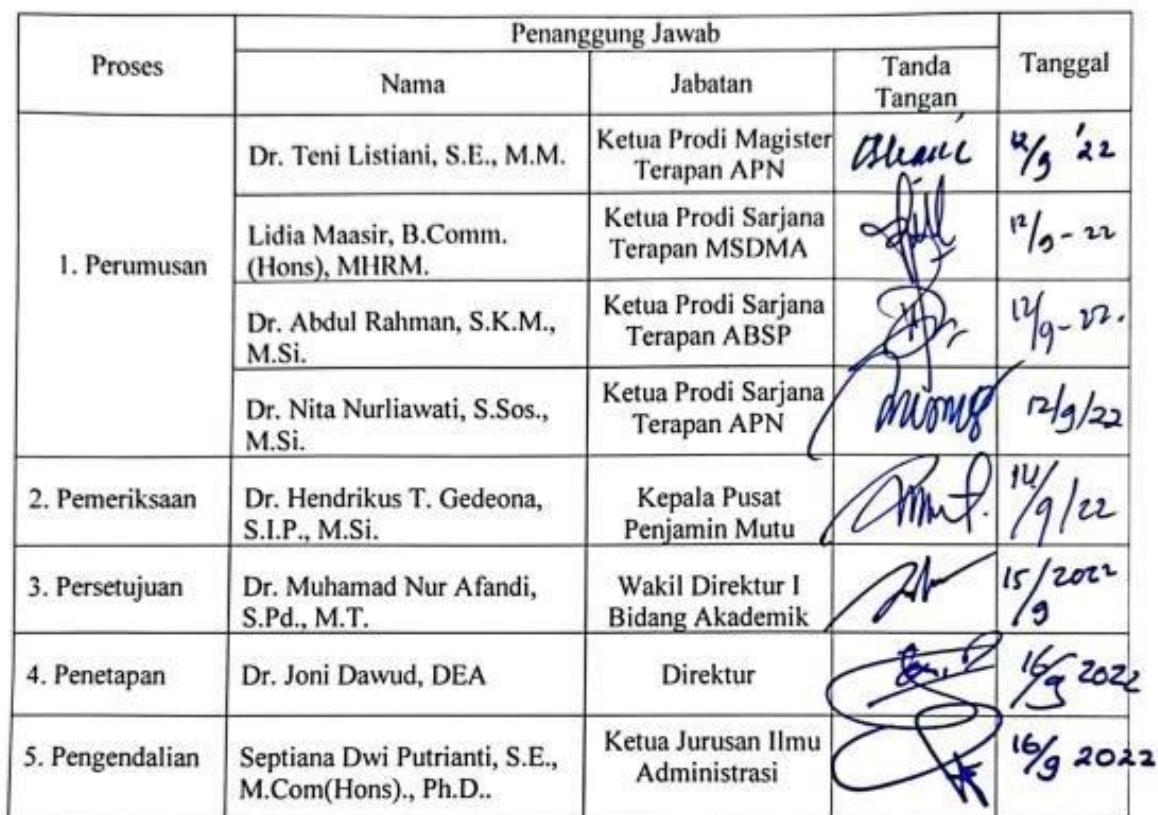 Proses
Penanggung Jawab
Tanggal
Nama
Jabatan
Tanda
Tangan
1. Perumusan
Dr. Teni Listiani, S.E., M.M.
Ketua Prodi Magister
Terapan APN
12/9 '22
Lidia Maasir, B.Comm.
(Hons), MHRM.
Ketua Prodi Sarjana
Terapan MSDMA
12/9-22
Dr. Abdul Rahman, S.K.M.,
M.Si.
Ketua Prodi Sarjana
Terapan ABSP
12/9-22.
Dr. Nita Nurliawati, S.Sos.,
M.Si.
Ketua Prodi Sarjana
Terapan APN
12/9/22
2. Pemeriksaan
Dr. Hendrikus T. Gedeona,
S.I.P., M.Si.
Kepala Pusat
Penjamin Mutu
14/9/22
3. Persetujuan
Dr. Muhamad Nur Afandi,
S.Pd., M.T.
Wakil Direktur I
Bidang Akademik
15/9 2022
4. Penetapan
Dr. Joni Dawud, DEA
Direktur
16/9 2022
5. Pengendalian
Septiana Dwi Putrianti, S.E.,
M.Com(Hons)., Ph.D..
Ketua Jurusan Ilmu
Administrasi
16/9 2022